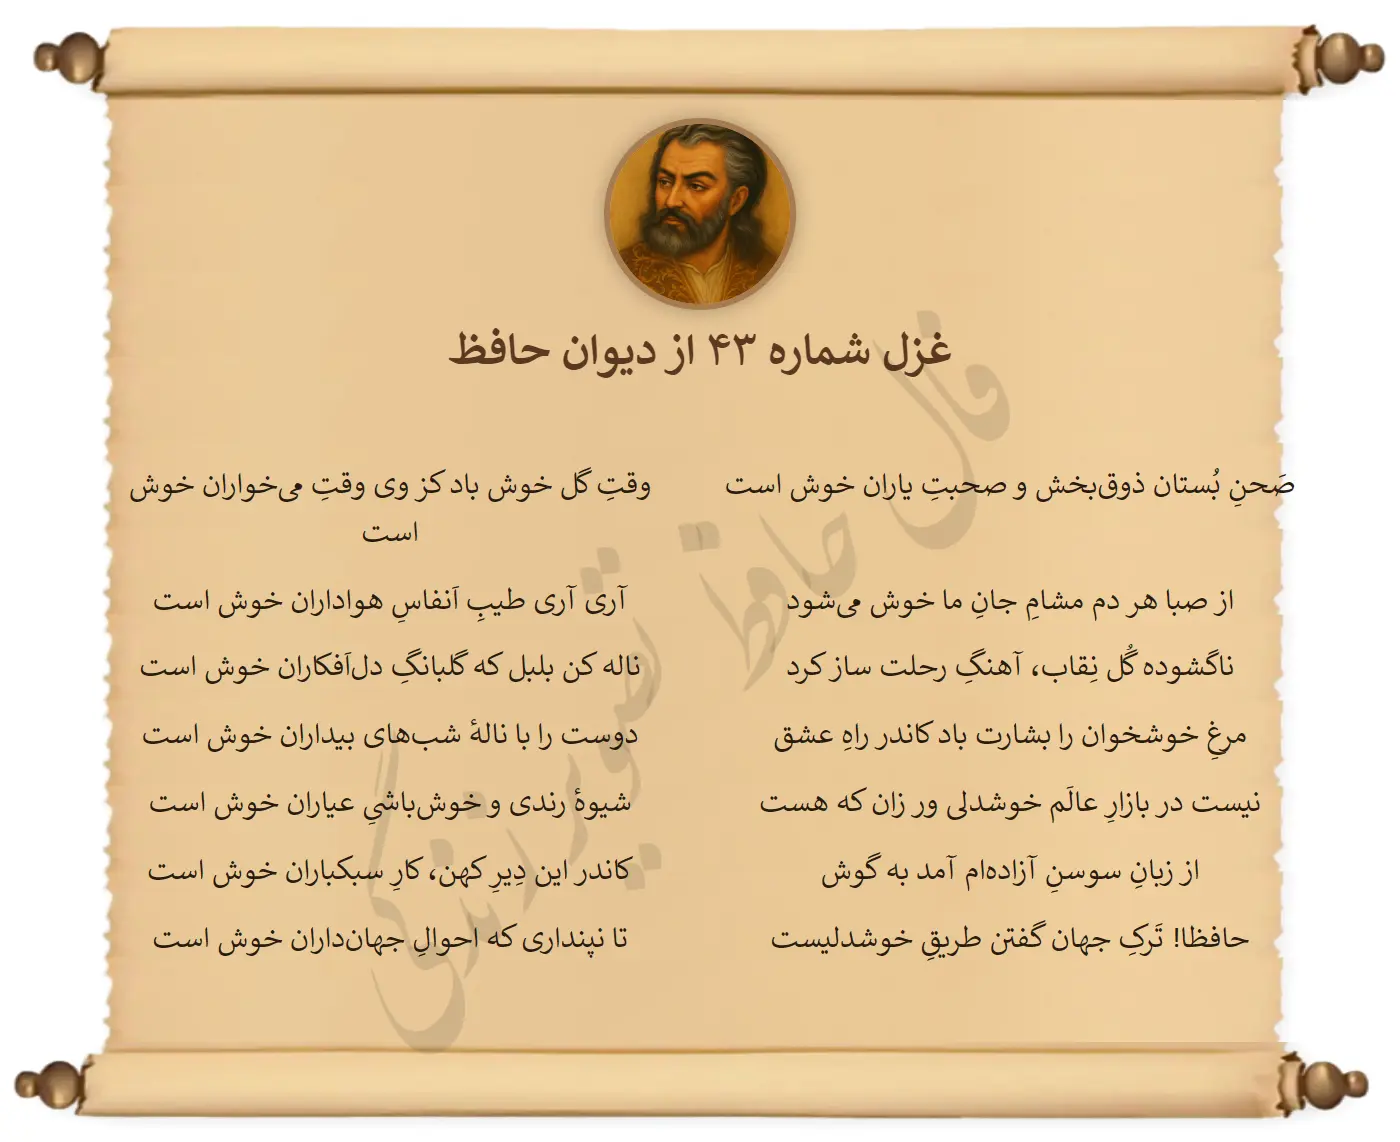 غزل شماره ۴۳ از دیوان حافظ
صَحنِ بُستان ذوق‌بخش و صحبتِ یاران خوش است
وقتِ گل خوش باد کز وی وقتِ می‌خواران خوش
است
از صبا هر دم مشامِ جانِ ما خوش می‌شود
آری آری طیبِ اَنفاسِ هواداران خوش است
ناگشوده گُل نِقاب، آهنگِ رحلت ساز کرد
ناله کن بلبل که گلبانگِ دل‌اَفکاران خوش است
مرغِ خوشخوان را بشارت باد کاندر راهِ عشق
دوست را با نالهٔ شب‌های بیداران خوش است
نیست در بازارِ عالَم خوشدلی ور زان که هست
شیوهٔ رندی و خوش‌باشیِ عیاران خوش است
از زبانِ سوسنِ آزاده‌ام آمد به گوش
کاندر این دِیرِ کهن، کارِ سبکباران خوش است
حافظا! تَرکِ جهان گفتن طریقِ خوشدلیست
تا نپنداری که احوالِ جهان‌داران خوش است
فال حافظ تصویر زندگی